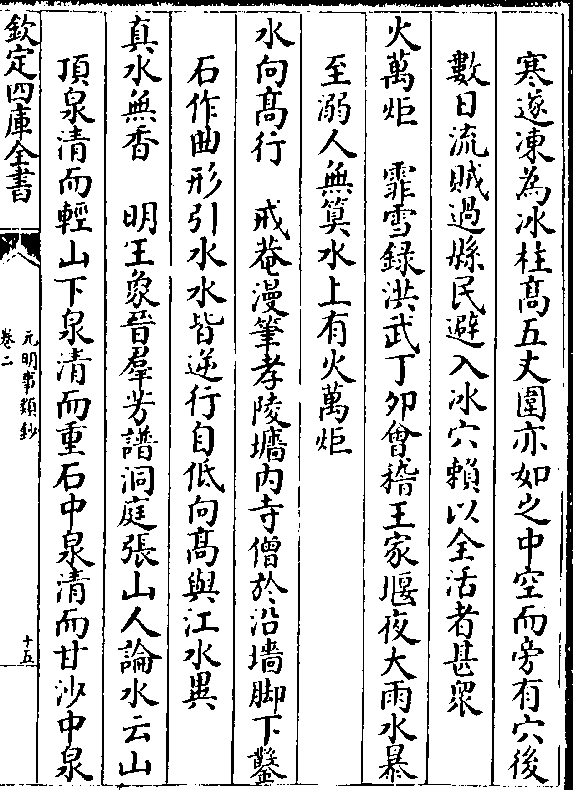 寒遂凍為冰柱髙五丈圍亦如之中空而旁有穴後
數日流賊過縣民避入冰穴賴以全活者甚衆
火萬炬　霏雪録洪武丁夘㑹稽王家堰夜大雨水暴
至溺人無算水上有火萬炬
水向髙行　戒菴漫筆孝陵墻内寺僧於沿墻脚下鑿
石作曲形引水水皆逆行自低向髙與江水異
真水無香　明王象晉羣芳譜洞庭張山人論水云山
頂泉清而輕山下泉清而重石中泉清而甘沙中泉
欽定四庫全書
元明事類鈔
卷二
十五